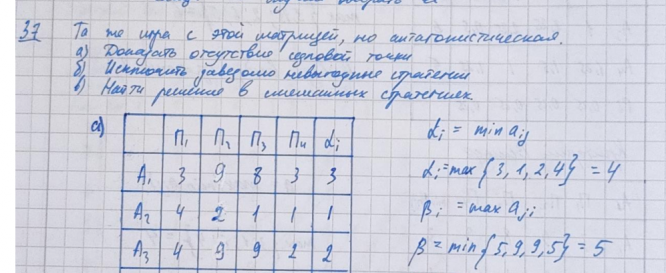 37 Та же игра с этой матрицей, но антагонистическая.
а) Доказать отсутствие седловой точки
б) Исключить заведомо невыгодные стратегии
в) Найти решение в смешанных стратегиях
а)
П1 П2 П3 П4 αi
A1 3 9 8 3 3
A2 4 2 1 1 1
A3 4 9 9 2 2
αi = min aij
αi = max {3, 1, 2, 4} = 4
βi = max aji
β = min {5, 9, 9, 5} = 5